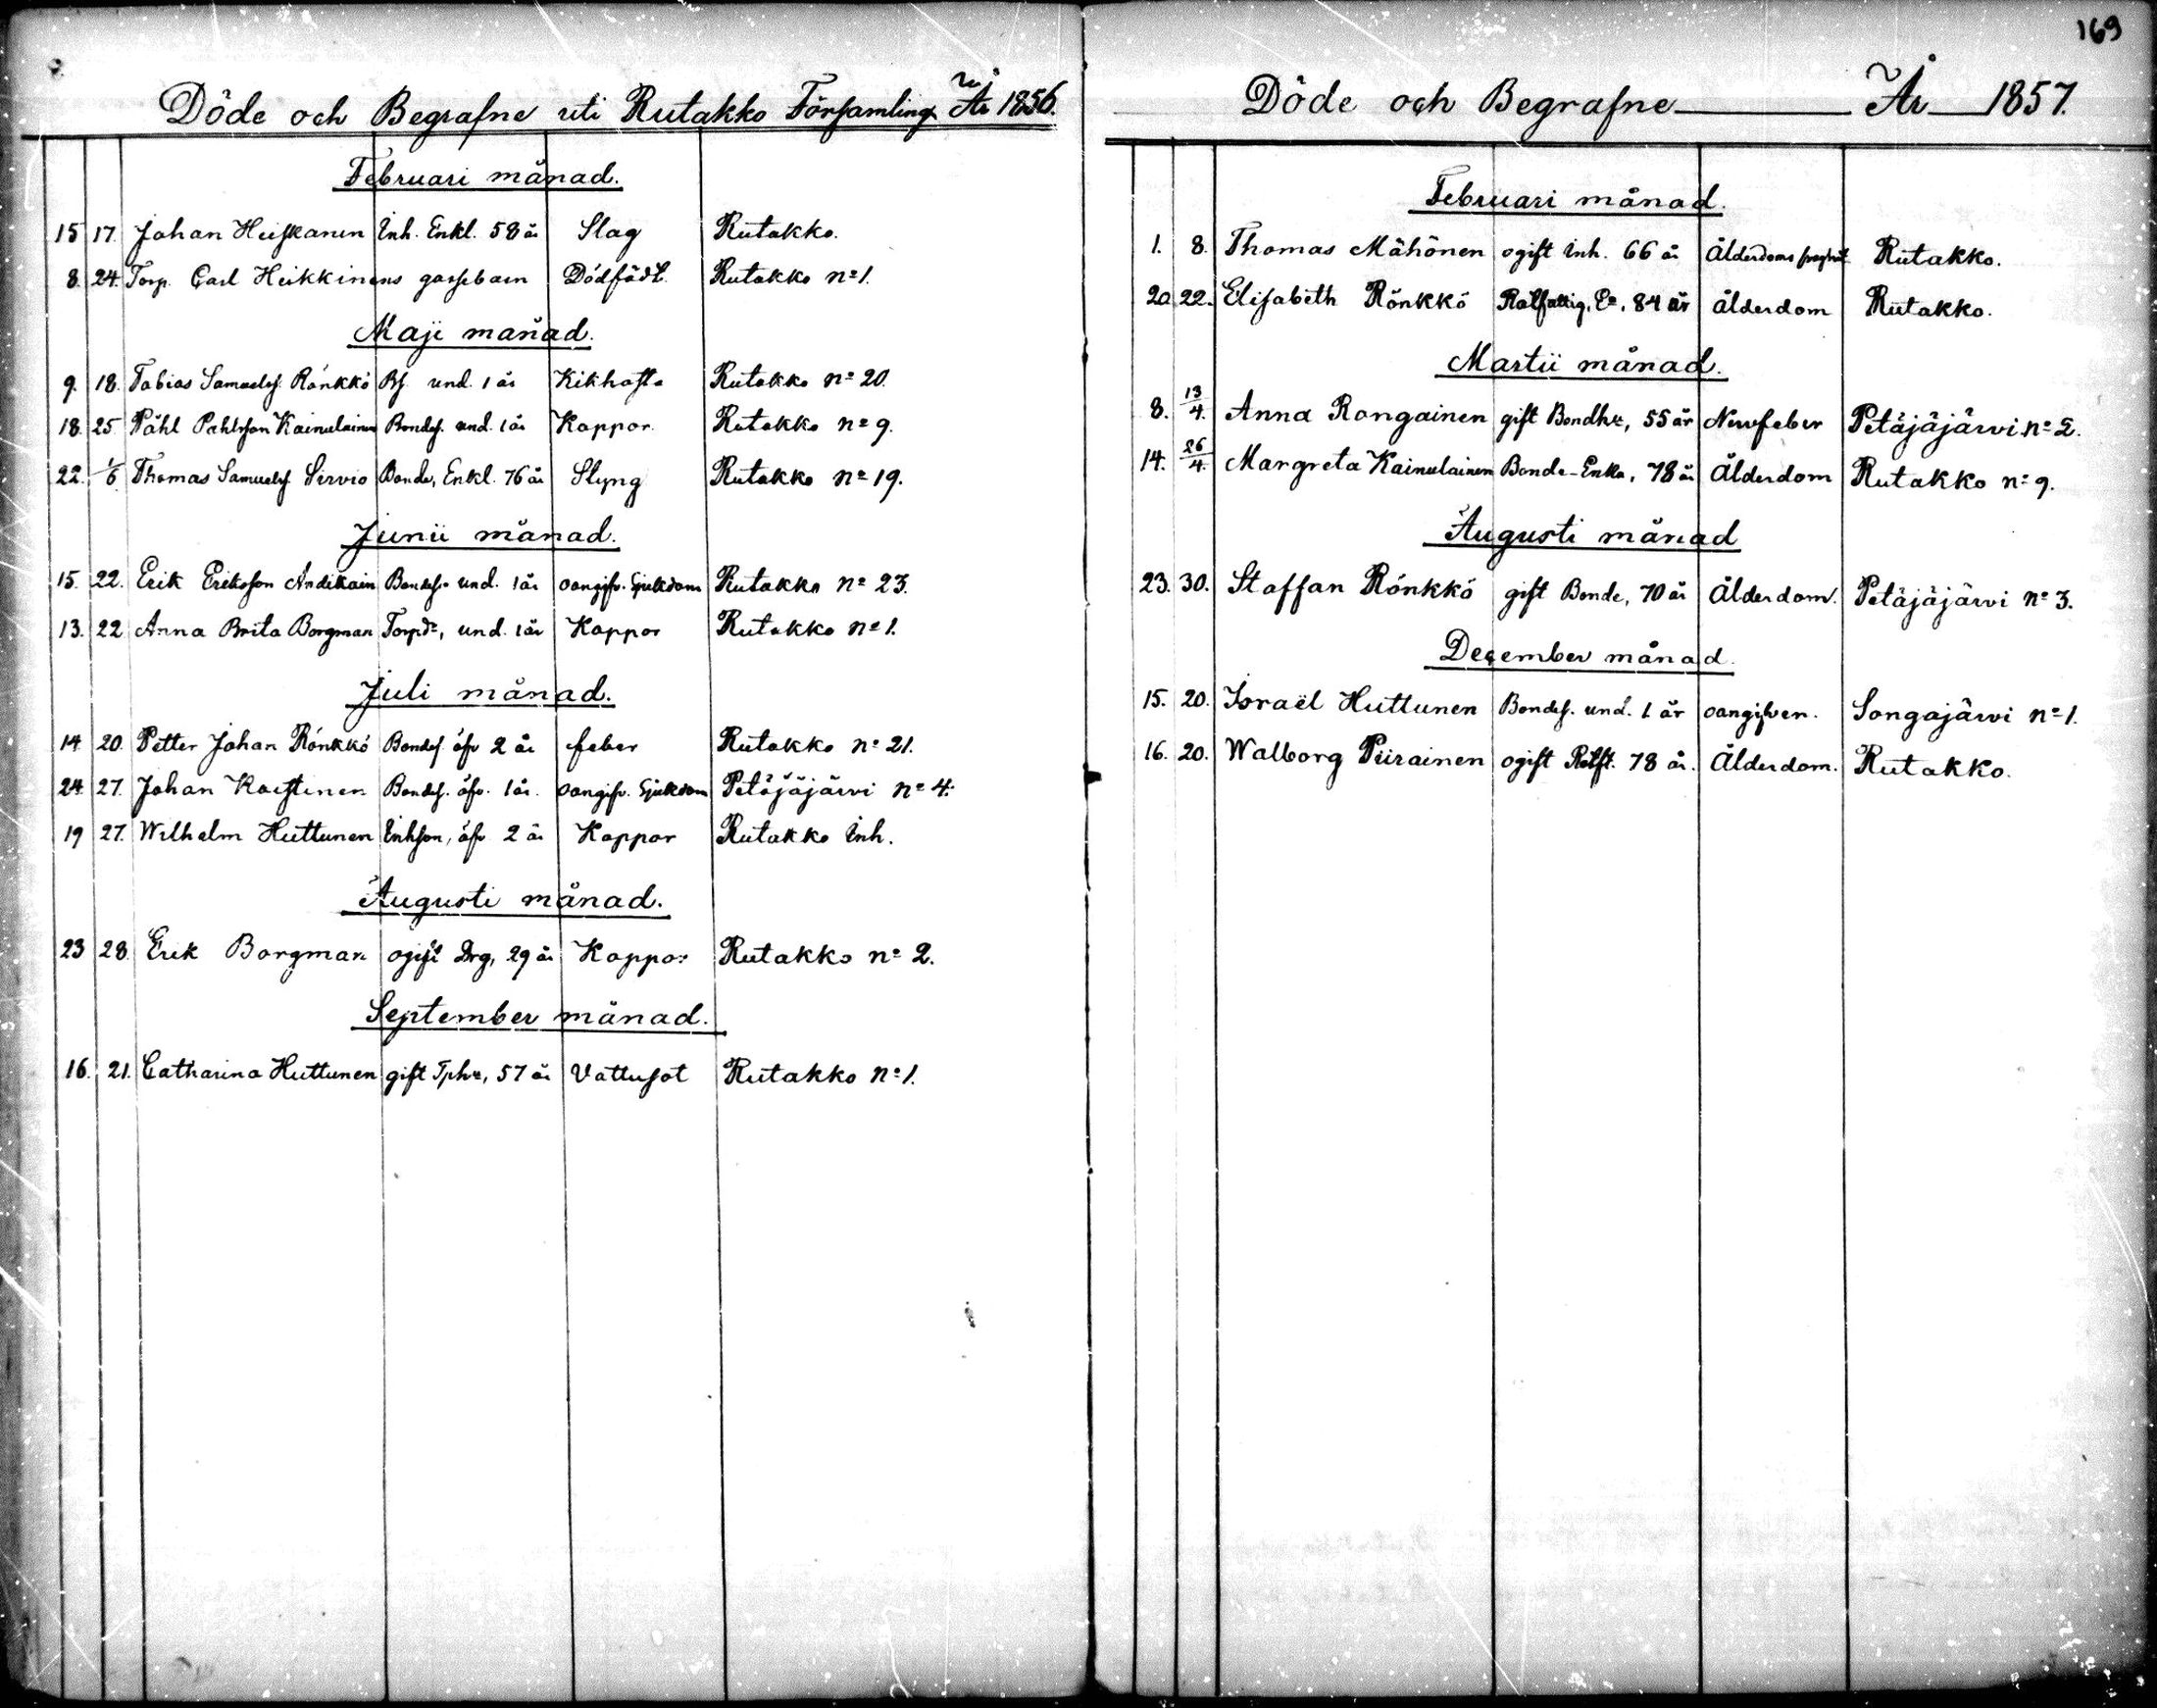 Döde och Begrafne uti Rutakko Församling År 1856.
Februari månad.
15 17. Johan Heiskanen Inh. Enkl. 58 år Slag Rutakko.
8. 24. Torp. Carl Heikkinens gossebarn Dödfödt. Rutakko nº 1.
Maji månad.
9. 18. Tobias Samuelss. Rönkkö Bs. und. 1 år Kikhosta Rutakko nº 20.
18. 25. Påhl Pahlsson Kainulainen Bondes. und. 1 år Koppor. Rutakko nº 9.
22. 1/6 Thomas Samuelss. Sirvio Bonde, Enkl. 76 år Styng Rutakko nº 19.
Junii månad.
15. 22. Erik Eriksson Andikain Bondeso und. 1 år oangifv. Sjukdom Rutakko nº 23.
13. 22 Anna Brita Borgman Torpdr, und. 1 år Koppor Rutakko nº 1.
Juli månad.
14 20. Petter Johan Rönkkö Bondes. öfv 2 år feber Rutakko nº 21.
24. 27. Johan Bondes. öfv. 1 år. oangifv. Sjukdom Petäjäjärvi nº 4.
19 27. Wilhelm Huttunen Inhson, öfv 2 år Koppor Rutakko Inh.
Augusti månad.
23 28. Erik Borgman ogift Drg, 29 år Koppor Rutakko nº 2.
September månad.
16. 21. Catharina Huttunen gift Tphu, 57 år Vattusot Rutakko nº 1.
169
Döde och Begrafne År 1857.
Februari månad.
1. 8. Thomas Mähönen ogift inh. 66 år Ålderdoms Rutakko.
20 22. Elisabeth Rönkkö Rotfattig, Ea, 84 år Ålderdom Rutakko.
Martii månad.
8. 13/4. Anna Rongainen gift Bondhu, 55 år Nervfeber Petäjäjärvi nº 2.
14. 26/4. Margreta Kainulainen Bonde-Enka, 78 år Ålderdom Rutakko nº 9.
Augusti månad
23. 30. Staffan Rönkkö gift Bonde, 70 år Ålderdom. Petäjäjärvi nº 3.
December månad.
15. 20. Israël Huttunen Bondes. und. 1 år oangifven. Songajärvi nº 1.
16. 20. Walborg Piirainen ogift Rotft. 78 år. Ålderdom. Rutakko.